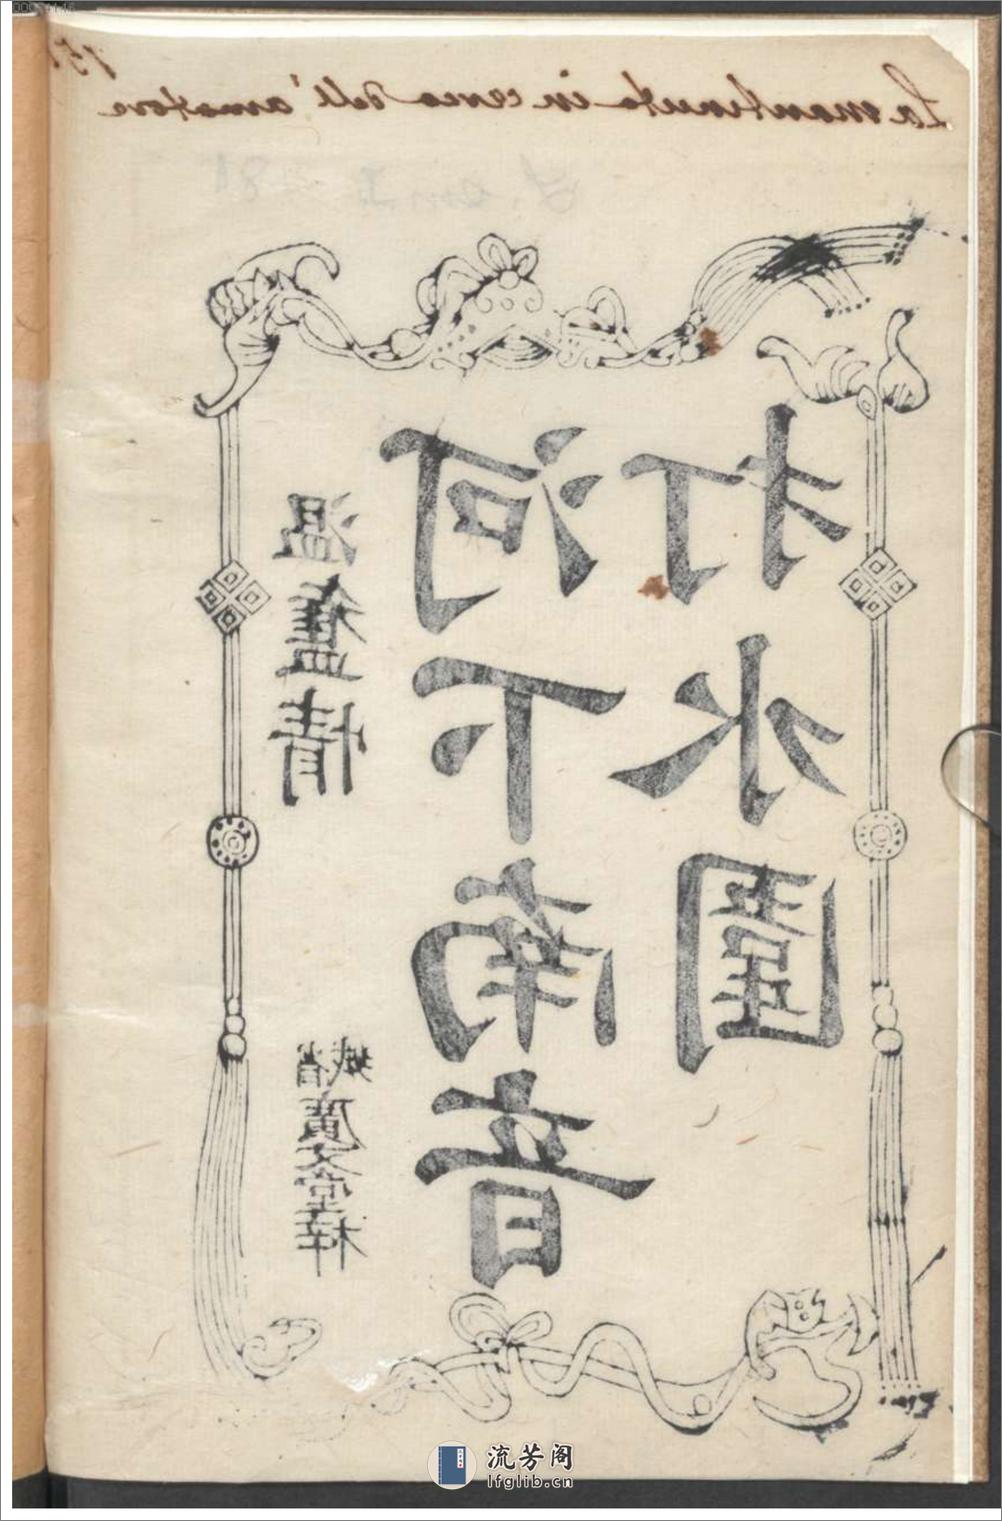 La mantinuta in cerca dell' amatore
溫舊情
省城廣文堂梓
河下南音
打水圍
流芳阁
lfglib.cn